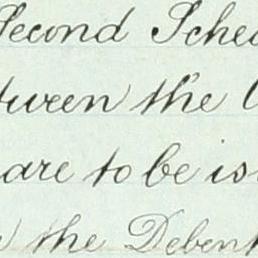 Second Sche
tween the
are to be is
the Deben